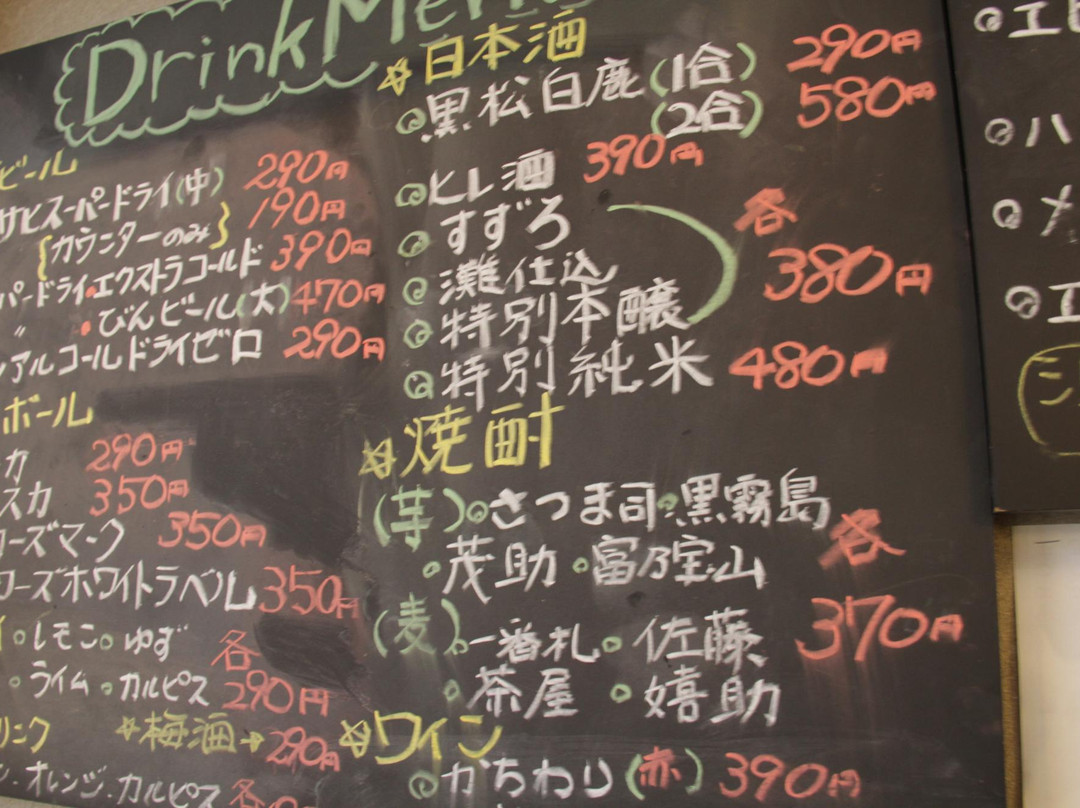 Drink Menu
ビール
サヒスーパードライ(中) 290円
{カウンターのみ} 190円
パードライ・エクストラコールド 390円
〃 ・びんビール(大) 470円
アルコールドライゼロ 290円
ボール
カ 290円
スカ 350円
ローズマーク 350円
ローズホワイトラベル 350円
。レモン。ゆず 各
。ライム。カルピス 290円
リンク ☆梅酒→ 290円
オレンジ.カルピス 各
☆日本酒
◎黒松白鹿(1合) 290円
(2合) 580円
◎ヒレ酒 390円
◎すずろ 各
◎灘仕込 380円
◎特別本醸
◎特別純米 480円
☆焼酎
(芋)。さつま司。黒霧島 各
。茂助。富乃宝山
(麦)。一番札。佐藤 370円
。茶屋。嬉助
☆ワイン
◎かちわり(赤) 390円
◎エビ
◎ハ
◎メ
◎エ